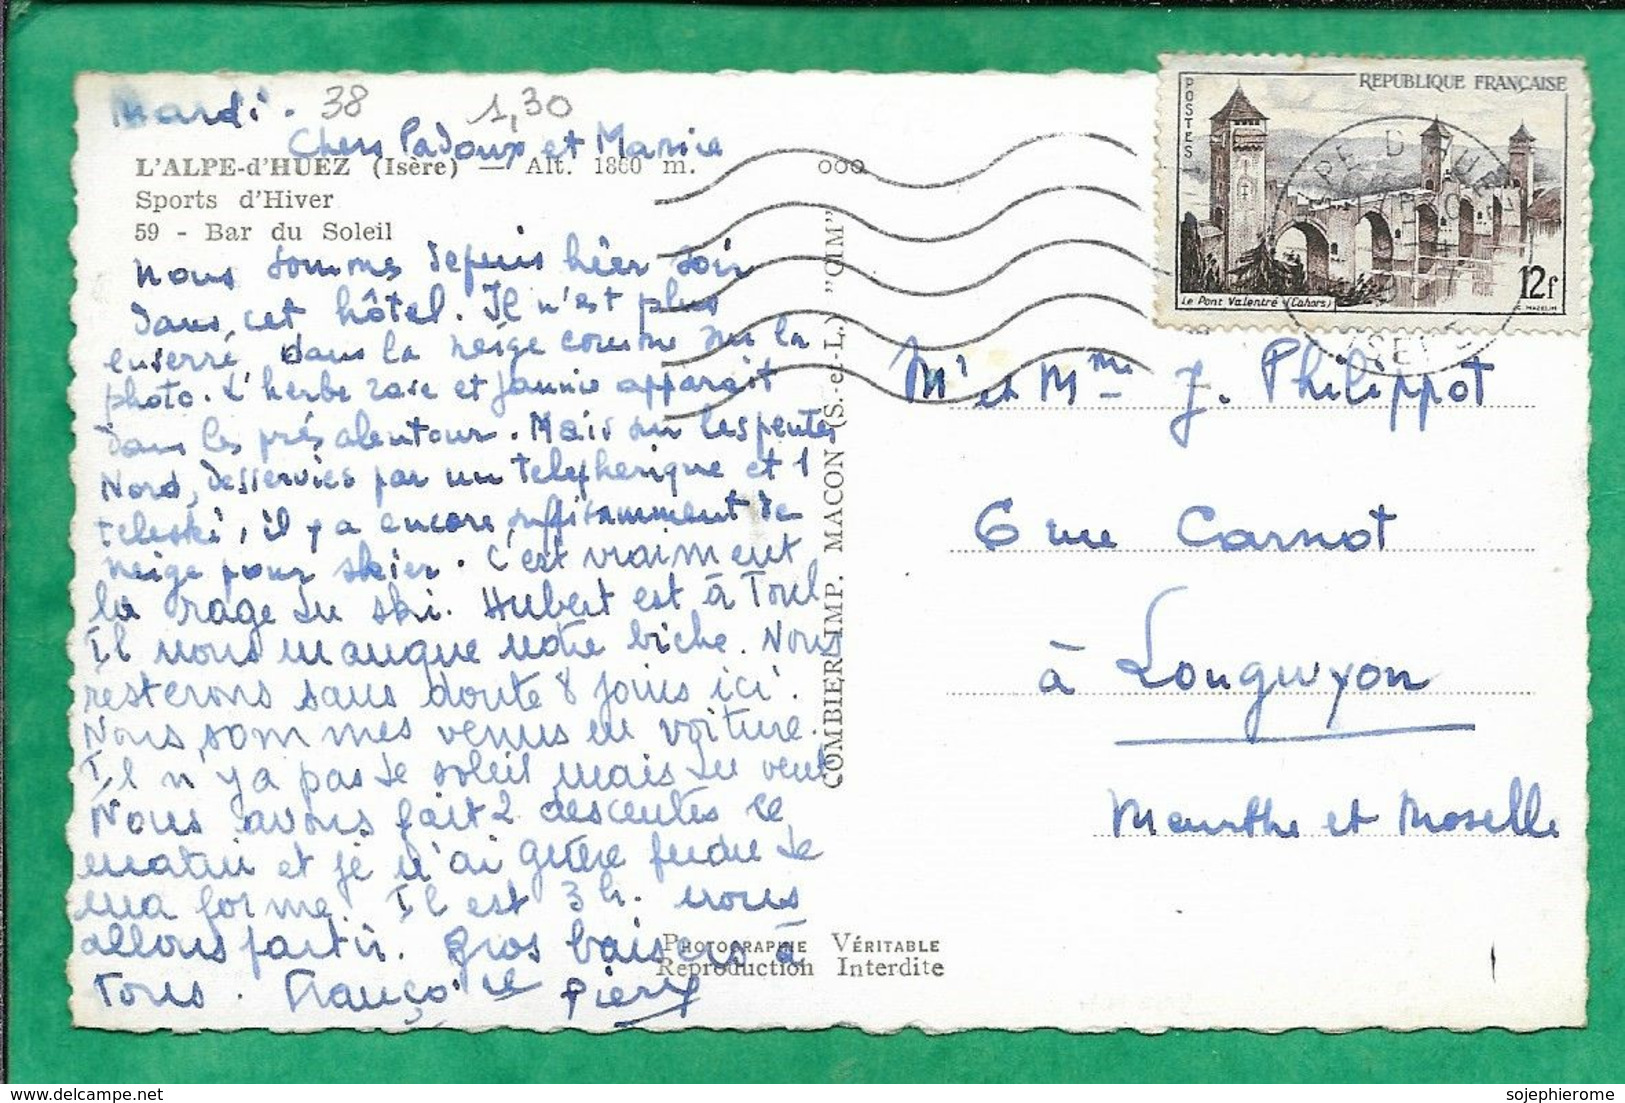 Mardi. 38 1,30
Chers Padoux et Marsie
L'ALPE-d'HUEZ (Isère) — Alt. 1860 m. ooo
Sports d'Hiver
59 - Bar du Soleil
Nous sommes depuis hier soir
dans cet hôtel. Il n'est plus
enserré, dans la neige comme sur la
photo. L'herbe rase et jaunie apparait
dans les prés alentour. Mais sur les pentes
Nord, desservies par un telepherique et 1
teleski, il y a encore suffisamment de
neige pour skier. C'est vraiment
la rage du ski. Hubert est à Toul
Il nous manque notre biche. Nous
resterons sans doute 8 jours ici.
Nous sommes venus en voiture.
Il n'y a pas de soleil mais du vent
Nous avons fait 2 descentes ce
matin et je n'ai guère perdu de
ma forme. Il est 3 h. nous
allons partir. Gros baisers à
Tous. Françoise Pierre
PHOTOGRAPHIE VÉRITABLE
Reproduction Interdite
COMBIER IMP. MACON (S.-et-L.) "CIM"
POSTES
REPUBLIQUE FRANÇAISE
Le Pont Valentré (Cahors)
12f
MAZELIN
Mr et Mme J. Philippot
6 rue Carnot
à Longuyon
Meurthe et Moselle
sojephierome